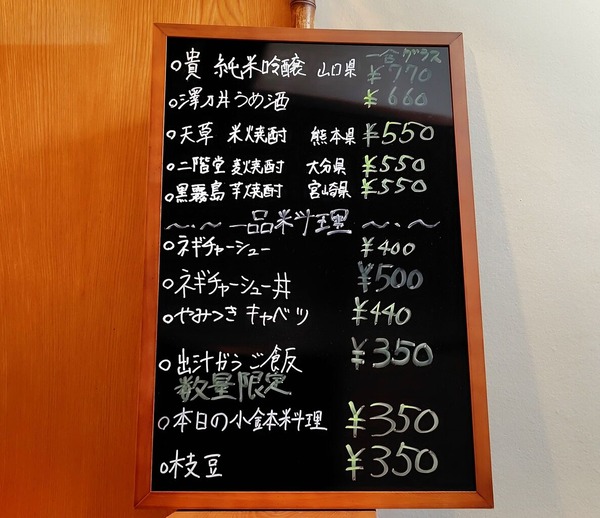 ○貴 純米吟醸 山口県 一合グラス ¥770
○澤乃井うめ酒 ¥660
○天草 米焼酎 熊本県 ¥550
○二階堂 麦焼酎 大分県 ¥550
○黒霧島 芋焼酎 宮崎県 ¥550
〜・〜 一品料理 〜・〜
○ネギチャーシュー ¥400
○ネギチャーシュー丼 ¥500
○やみつきキャベツ ¥440
○出汁がらご飯 ¥350
数量限定
○本日の小鉢料理 ¥350
○枝豆 ¥350